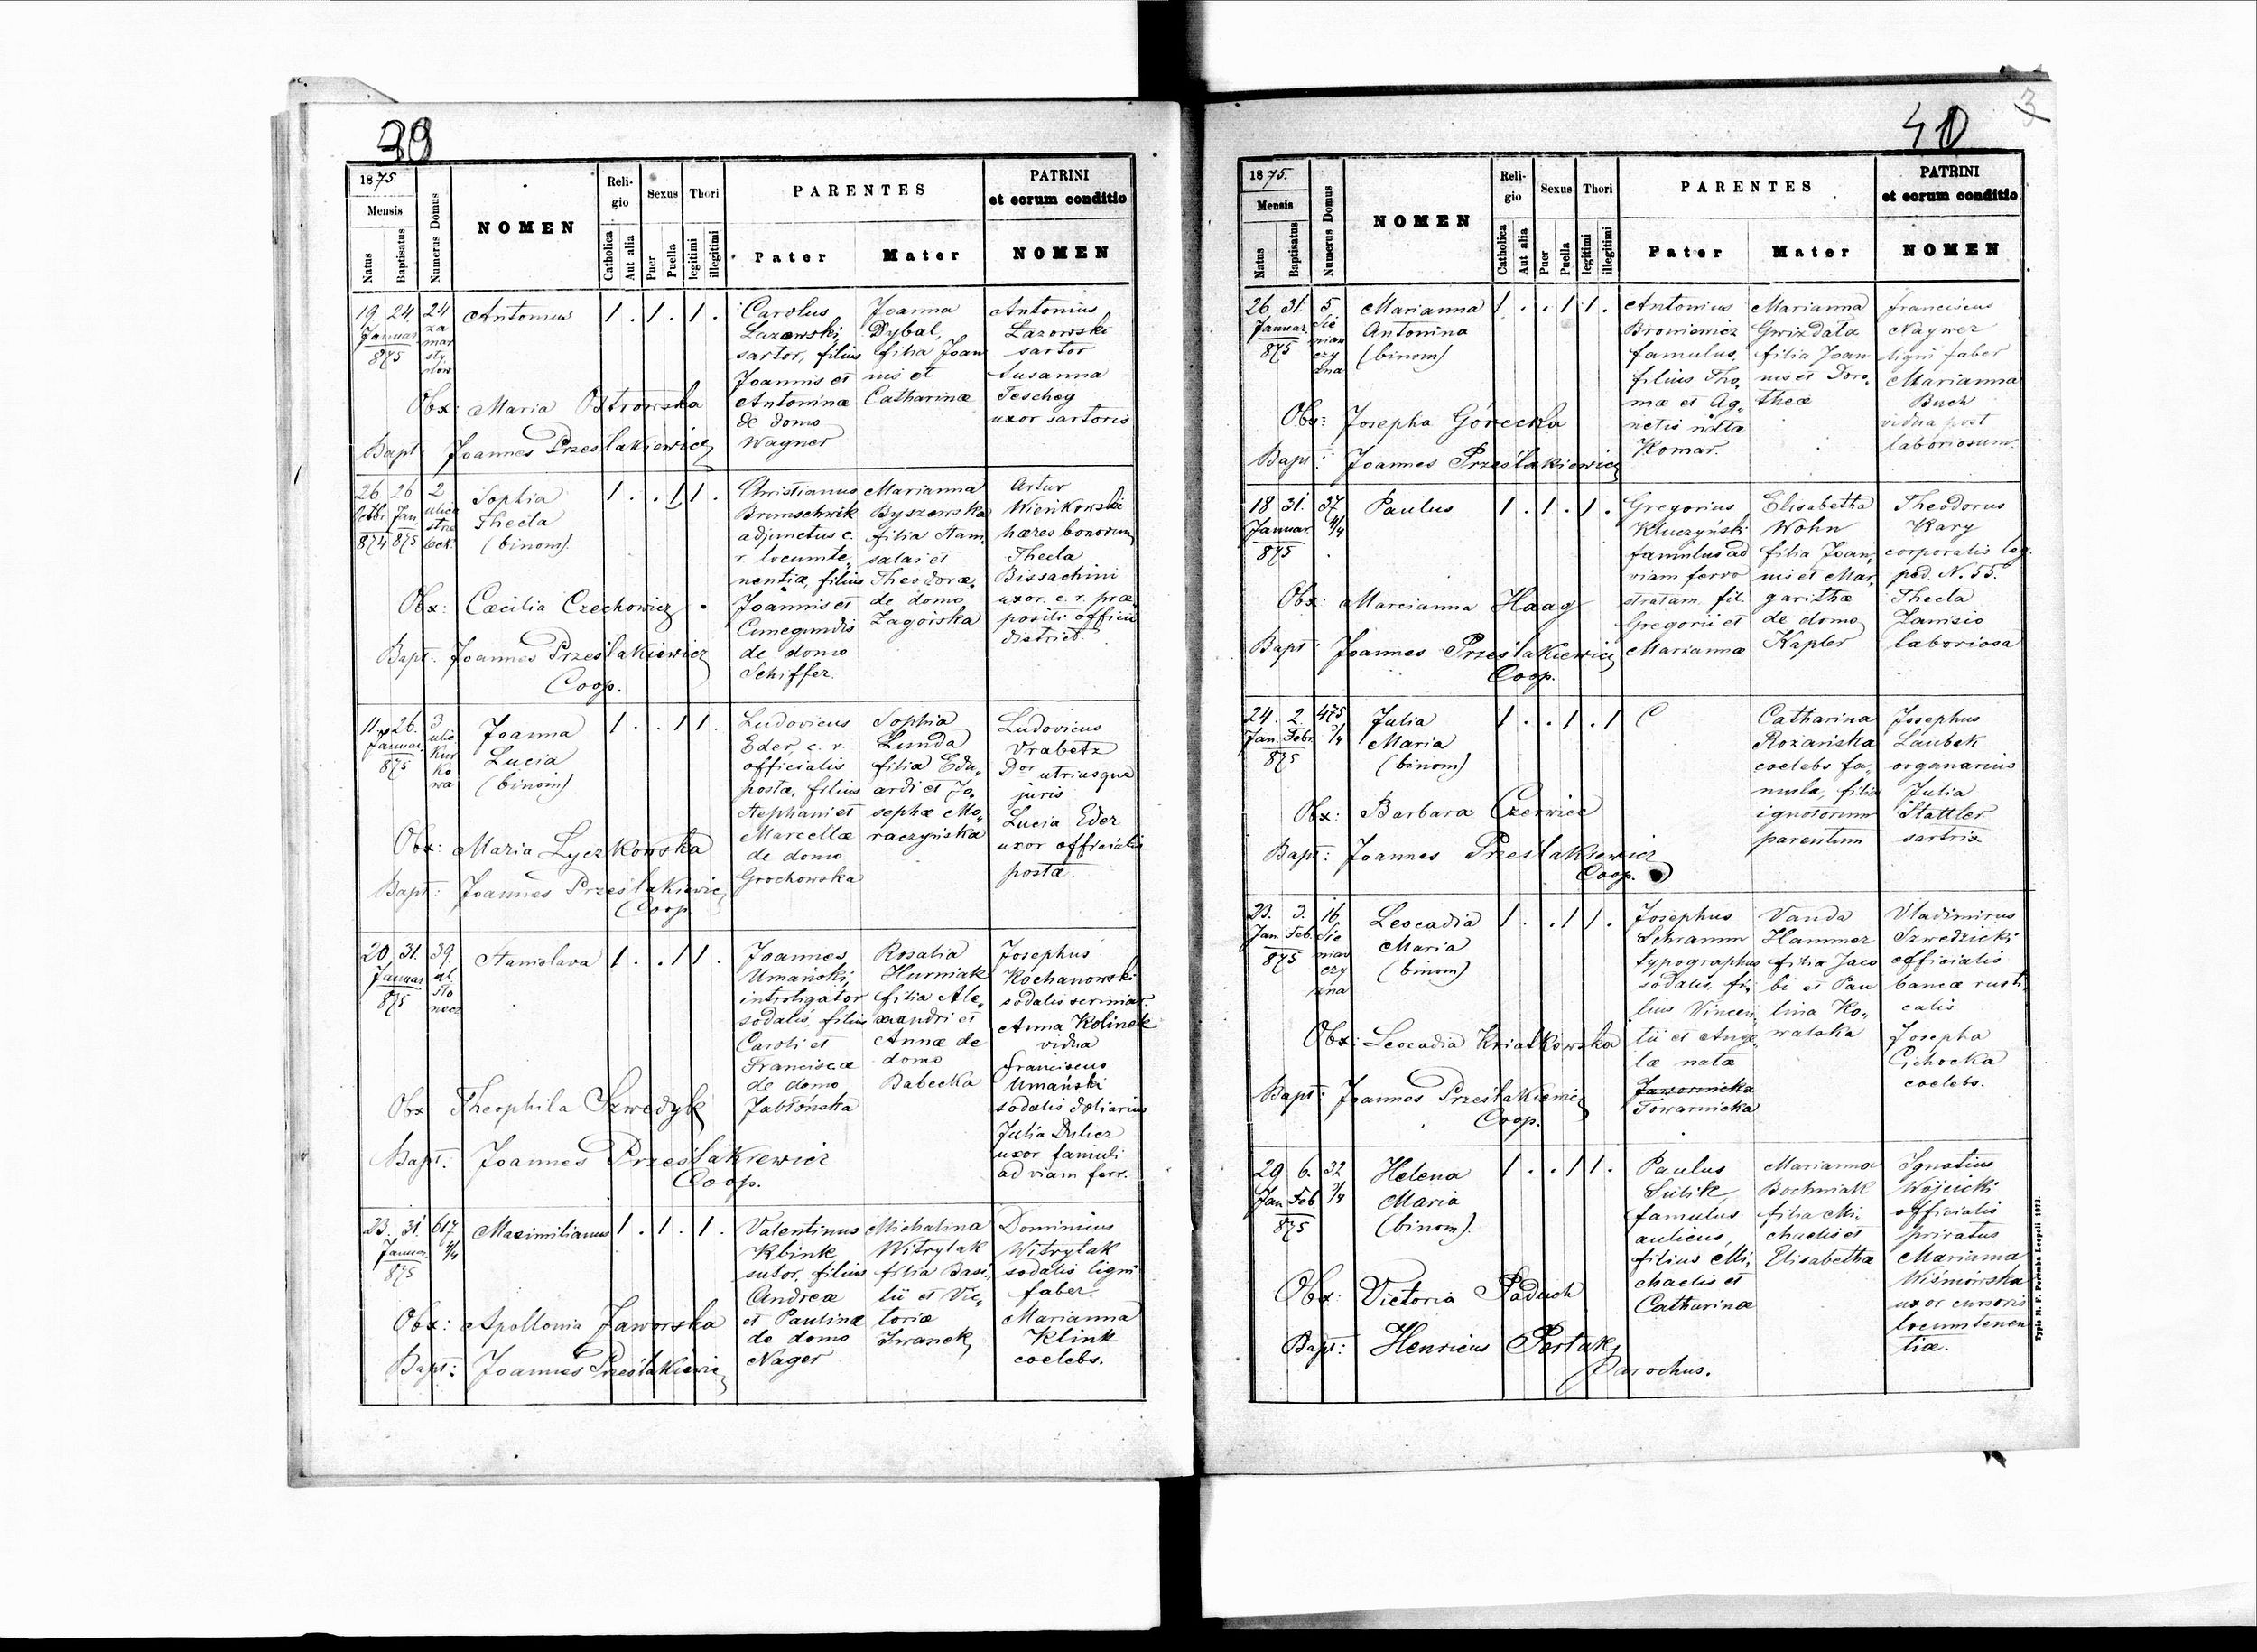 39
1875
Mensis
Natus
Baptisatus
Numerus Domus
NOMEN
Reli-
gio
Catholica
Aut alia
Sexus
Puer
Puella
Thori
legitimi
illegitimi
PARENTES
Pater
Mater
PATRINI
et eorum conditio
NOMEN
19. 24.
Januar.
875
24
za
mar
sty
Antonius
1 . 1 . 1 .
Carolus
Lazowski,
sartor, filius
Joannis et
Antoninæ
de domo
Wagner
Joanna
Dybal,
filia Joan
nis et
Catharinæ
Antonius
Lazowski
sartor
Susanna
Tescheg
uxor sartoris
Obx: Maria Ostrowska
Bapt: Joannes Prześlakiewicz
26. 26
Octbr. Jan.
874 875
2
ulica
strze
leck.
Sophia
Thecla
(binom).
1 . . 1 1 .
Christianus
Brunschwik
adjunctus c.
r. locumte„
nentiæ, filius
Joannis et
Cunegundis
de domo
Schiffer.
Marianna
Byszewska
filia Stani
salai et
Theodoræ
de domo
Zagorska
Artur
Wienkowski
hæres bonorum
Thecla
Bissachini
uxor. c. r. præ
positi officii
district.
Obx: Cæcilia Czechowicz
Bapt: Joannes Prześlakiewicz
Coop.
11. 26.
Januar.
875
3
ulic
Kur
ko
wa
Joanna
Lucia
(binom)
1 . . 1 1 .
Ludovicus
Eder, c. r.
officialis
postæ, filius
Stephani et
Marcellæ
de domo
Grochowska
Sophia
Lunda
filia Edu„
ardi et Jo„
sephæ Mo„
raczyńska
Ludovicus
Vrabetz
Dor utriusque
juris
Lucia Eder
uxor officialis
postæ.
Obx: Maria Lyczkowska
Bapt: Joannes Prześlakiewicz
Coop.
20 31.
Januar
875
39.
ul.
sło
necz
Stanislava
1 . . 1 1 .
Joannes
Umański,
introligator
sodalis, filius
Caroli et
Franciscæ
de domo
Jabłońska
Rosalia
Hurniak
filia Ale„
xandri et
Annæ de
domo
Babecka
Josephus
Kochanowski
sodalis scriniar.
Anna Kolinek
vidua
Franciscus
Umański
sodalis doliarius
Julia Dulicz
uxor famuli
ad viam ferr.
Obx Theophila Szwedyk
Bapt: Joannes Prześlakiewicz
Coop.
23. 31.
Januar.
875
617
4/4
Maximilianus
1 . 1 . 1 .
Valentinus
Klink
sutor, filius
Andreæ
et Paulinæ
de domo
Nager
Michalina
Witrylak
filia Basi„
lii et Vic„
toriæ
Iwanek
Dominicus
Witrylak
sodalis ligni
faber.
Marianna
Klink
coelebs.
Obx: Apollonia Jaworska
Bapt: Joannes Prześlakiewicz
40
3
1875.
Mensis
Natus
Baptisatus
Numerus Domus
NOMEN
Reli-
gio
Catholica
Aut alia
Sexus
Puer
Puella
Thori
legitimi
illegitimi
PARENTES
Pater
Mater
PATRINI
et eorum conditio
NOMEN
26 31.
Januar.
875
5
Sie
niaw
czy
zna
Marianna
Antonina
(binom)
1 . . 1 1 .
Antonius
Broniewicz
famulus,
filius Tho„
mæ et Ag„
netis natæ
Komar.
Marianna
Gwizdała
filia Joan
nis et Doro„
theæ
Franciscus
Naywer
ligni faber
Marianna
Buch
vidua post
laboriosum.
Obx: Josepha Górecka
Bapt: Joannes Prześlakiewicz
18 31.
Januar.
875
37
4/4
Paulus
1 . 1 . 1 .
Gregorius
Kluczyński
famulus ad
viam ferro
stratam, fil.
Gregorii et
Mariannæ
Elisabetha
Wohn
filia Joan„
nis et Mar„
garithæ
de domo
Kapler
Theodorus
Kary
corporalis leg.
ped. N. 55.
Thecla
Zanisio
laboriosa
Obx: Marcianna Haag
Bapt: Joannes Prześlakiewicz
Coop.
24. 2.
Jan. Febr.
875
475
3/4
Julia
Maria
(binom)
1 . . 1 . 1
Catharina
Rozańska
coelebs fa„
mula, filia
ignotorum
parentum
Josephus
Laubek
organarius
Julia
Stattler
sartrix
Obx: Barbara Czerwiec
Bapt: Joannes Prześlakiewicz
Coop.
23. 3.
Jan. Feb.
875
16
Sie
niaw
czy
zna
Leocadia
Maria
(binom)
1 . . 1 1 .
Josephus
Schramm
typographus
sodalis, fi„
lius Vincen„
tii et Ange„
læ natæ
Jawornicka
Towarnicka
Vanda
Hammer
filia Jaco
bi et Pau
lina Ko„
walska
Vladimirus
Szwedzicki
officialis
bancæ rusti„
calis
Josepha
Cichocka
coelebs.
Obx: Leocadia Kwiatkowska
Bapt: Joannes Prześlakiewicz
Coop.
29 6.
Jan Feb
875
32
3/4
Helena
Maria
(binom).
1 . . 1 1 .
Paulus
Sulik
famulus
aulicus,
filius Mi„
chaelis et
Catharinæ
Marianna
Bochniak
filia Mi„
chaelis et
Elisabethæ
Ignatius
Wójcicki
officialis
privatus
Marianna
Wiśniowska
uxor cursoris
locumtenen
tiæ.
Obx: Victoria Paduch
Bapt: Henricus Portak
Parochus.
Typis M. F. Poremba Leopoli 1873.